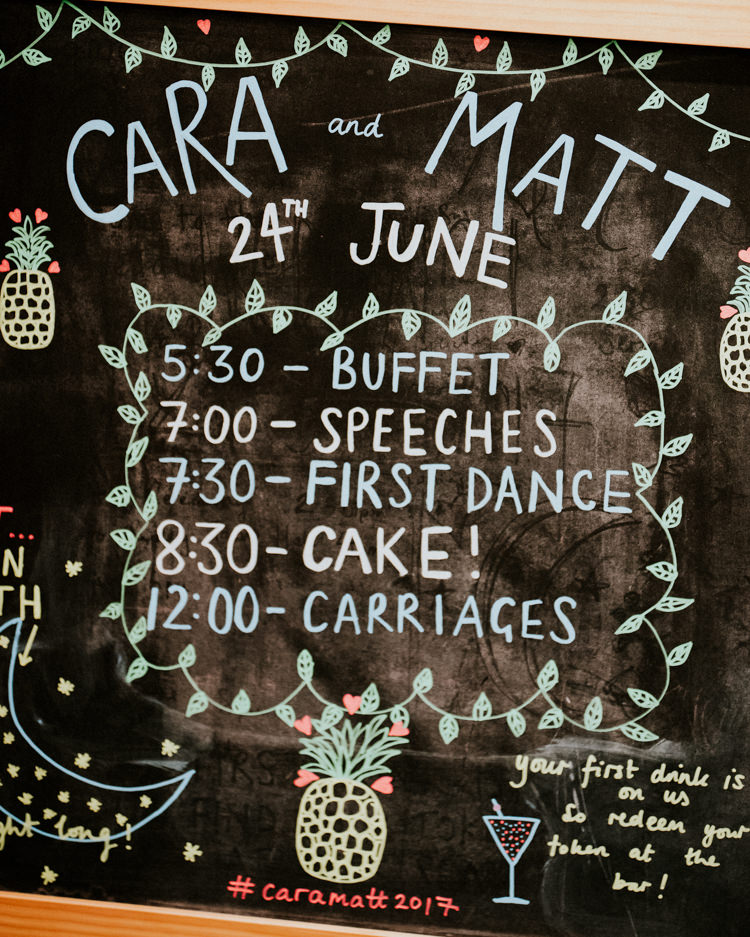 CARA and MATT
24TH JUNE
5:30 - BUFFET
7:00 - SPEECHES
7:30 - FIRST DANCE
8:30 - CAKE!
12:00 - CARRIAGES
your first drink is
on us
So redeem your
token at the
bar!
long!
#caramatt2017